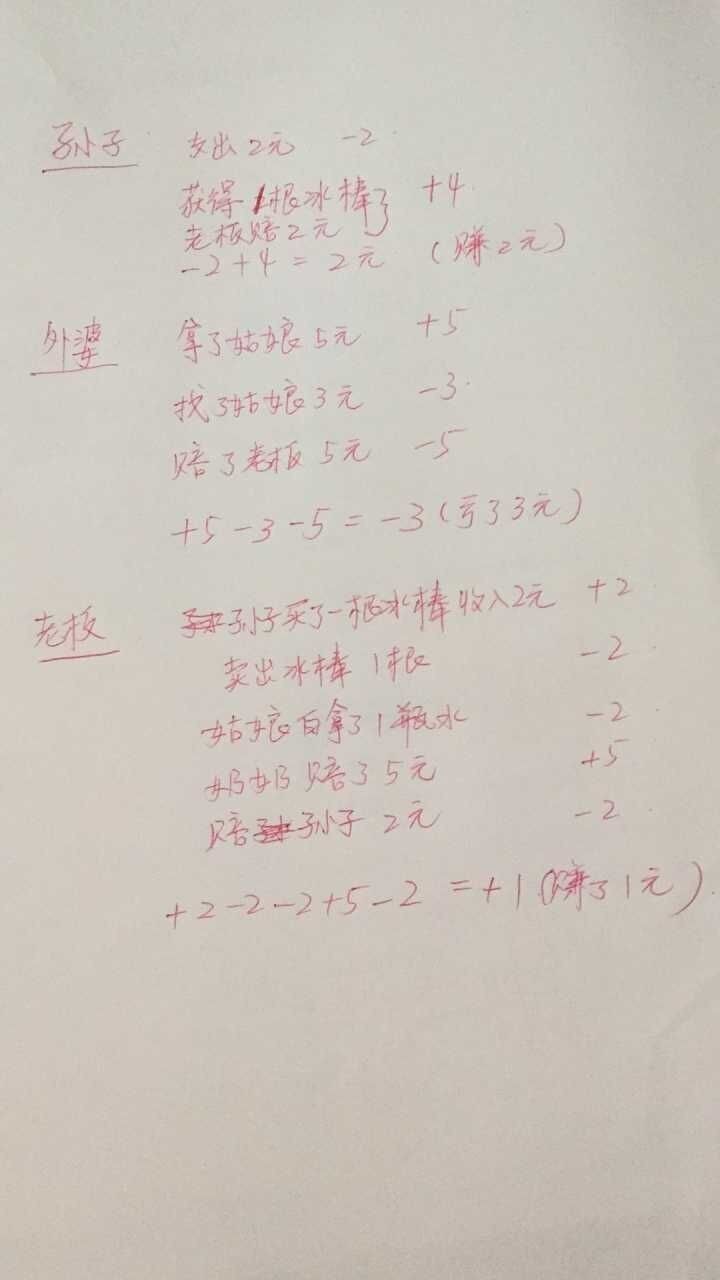 孙小子 支出2元 -2
获得1根冰棒} +4
老板赔2元
-2+4=2元 (赚2元)
外婆 拿了姑娘5元 +5
找了姑娘3元 -3
赔了老板5元 -5
+5-3-5=-3(亏了3元)
老板 孙小子买了一根冰棒收入2元 +2
卖出冰棒1根 -2
姑娘白拿了1瓶水 -2
奶奶赔了5元 +5
赔孙小子2元 -2
+2-2-2+5-2=+1(赚了1元)